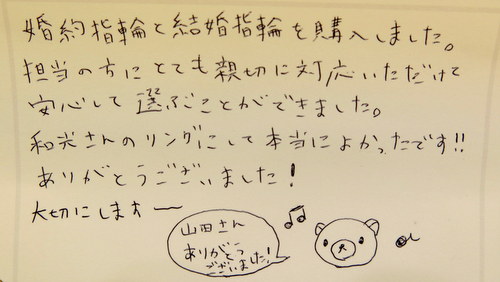 婚約指輪と結婚指輪を購入しました。
担当の方にとても親切に対応いただけて
安心して選ぶことができました。
和光さんのリングにして本当によかったです!!
ありがとうございました!
大切にします〜
山田さん
ありがとう
ございました!